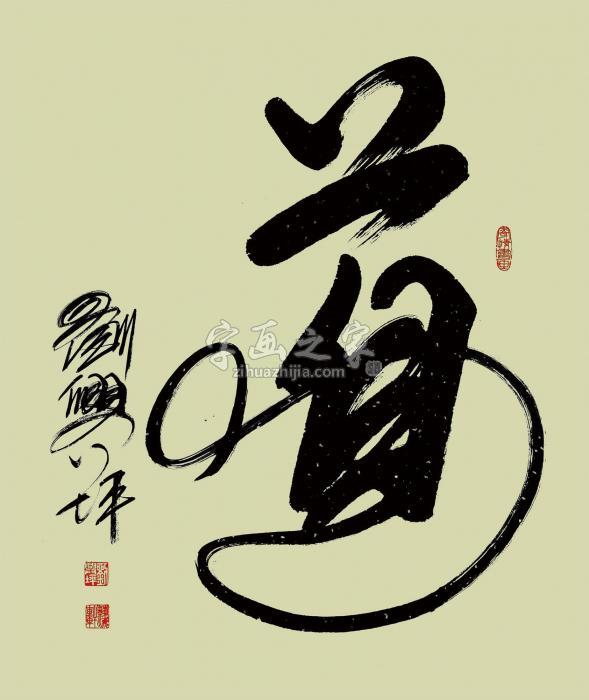 道
劉興坪
字画之家
zihuazhijia.com